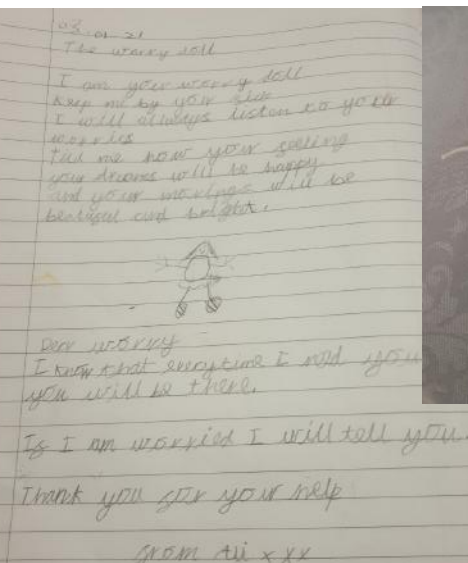 03.01.21
The worry doll
I am your worry doll
Keep me by your side
I will always listen to your
worries
Tell me how your feeling
your dreams will be happy
and your mornings will be
and bright.
Dear worry
I know that everytime I need you
you will be there.
If I am worried I will tell you.
Thank you for your help
from Ali x xx